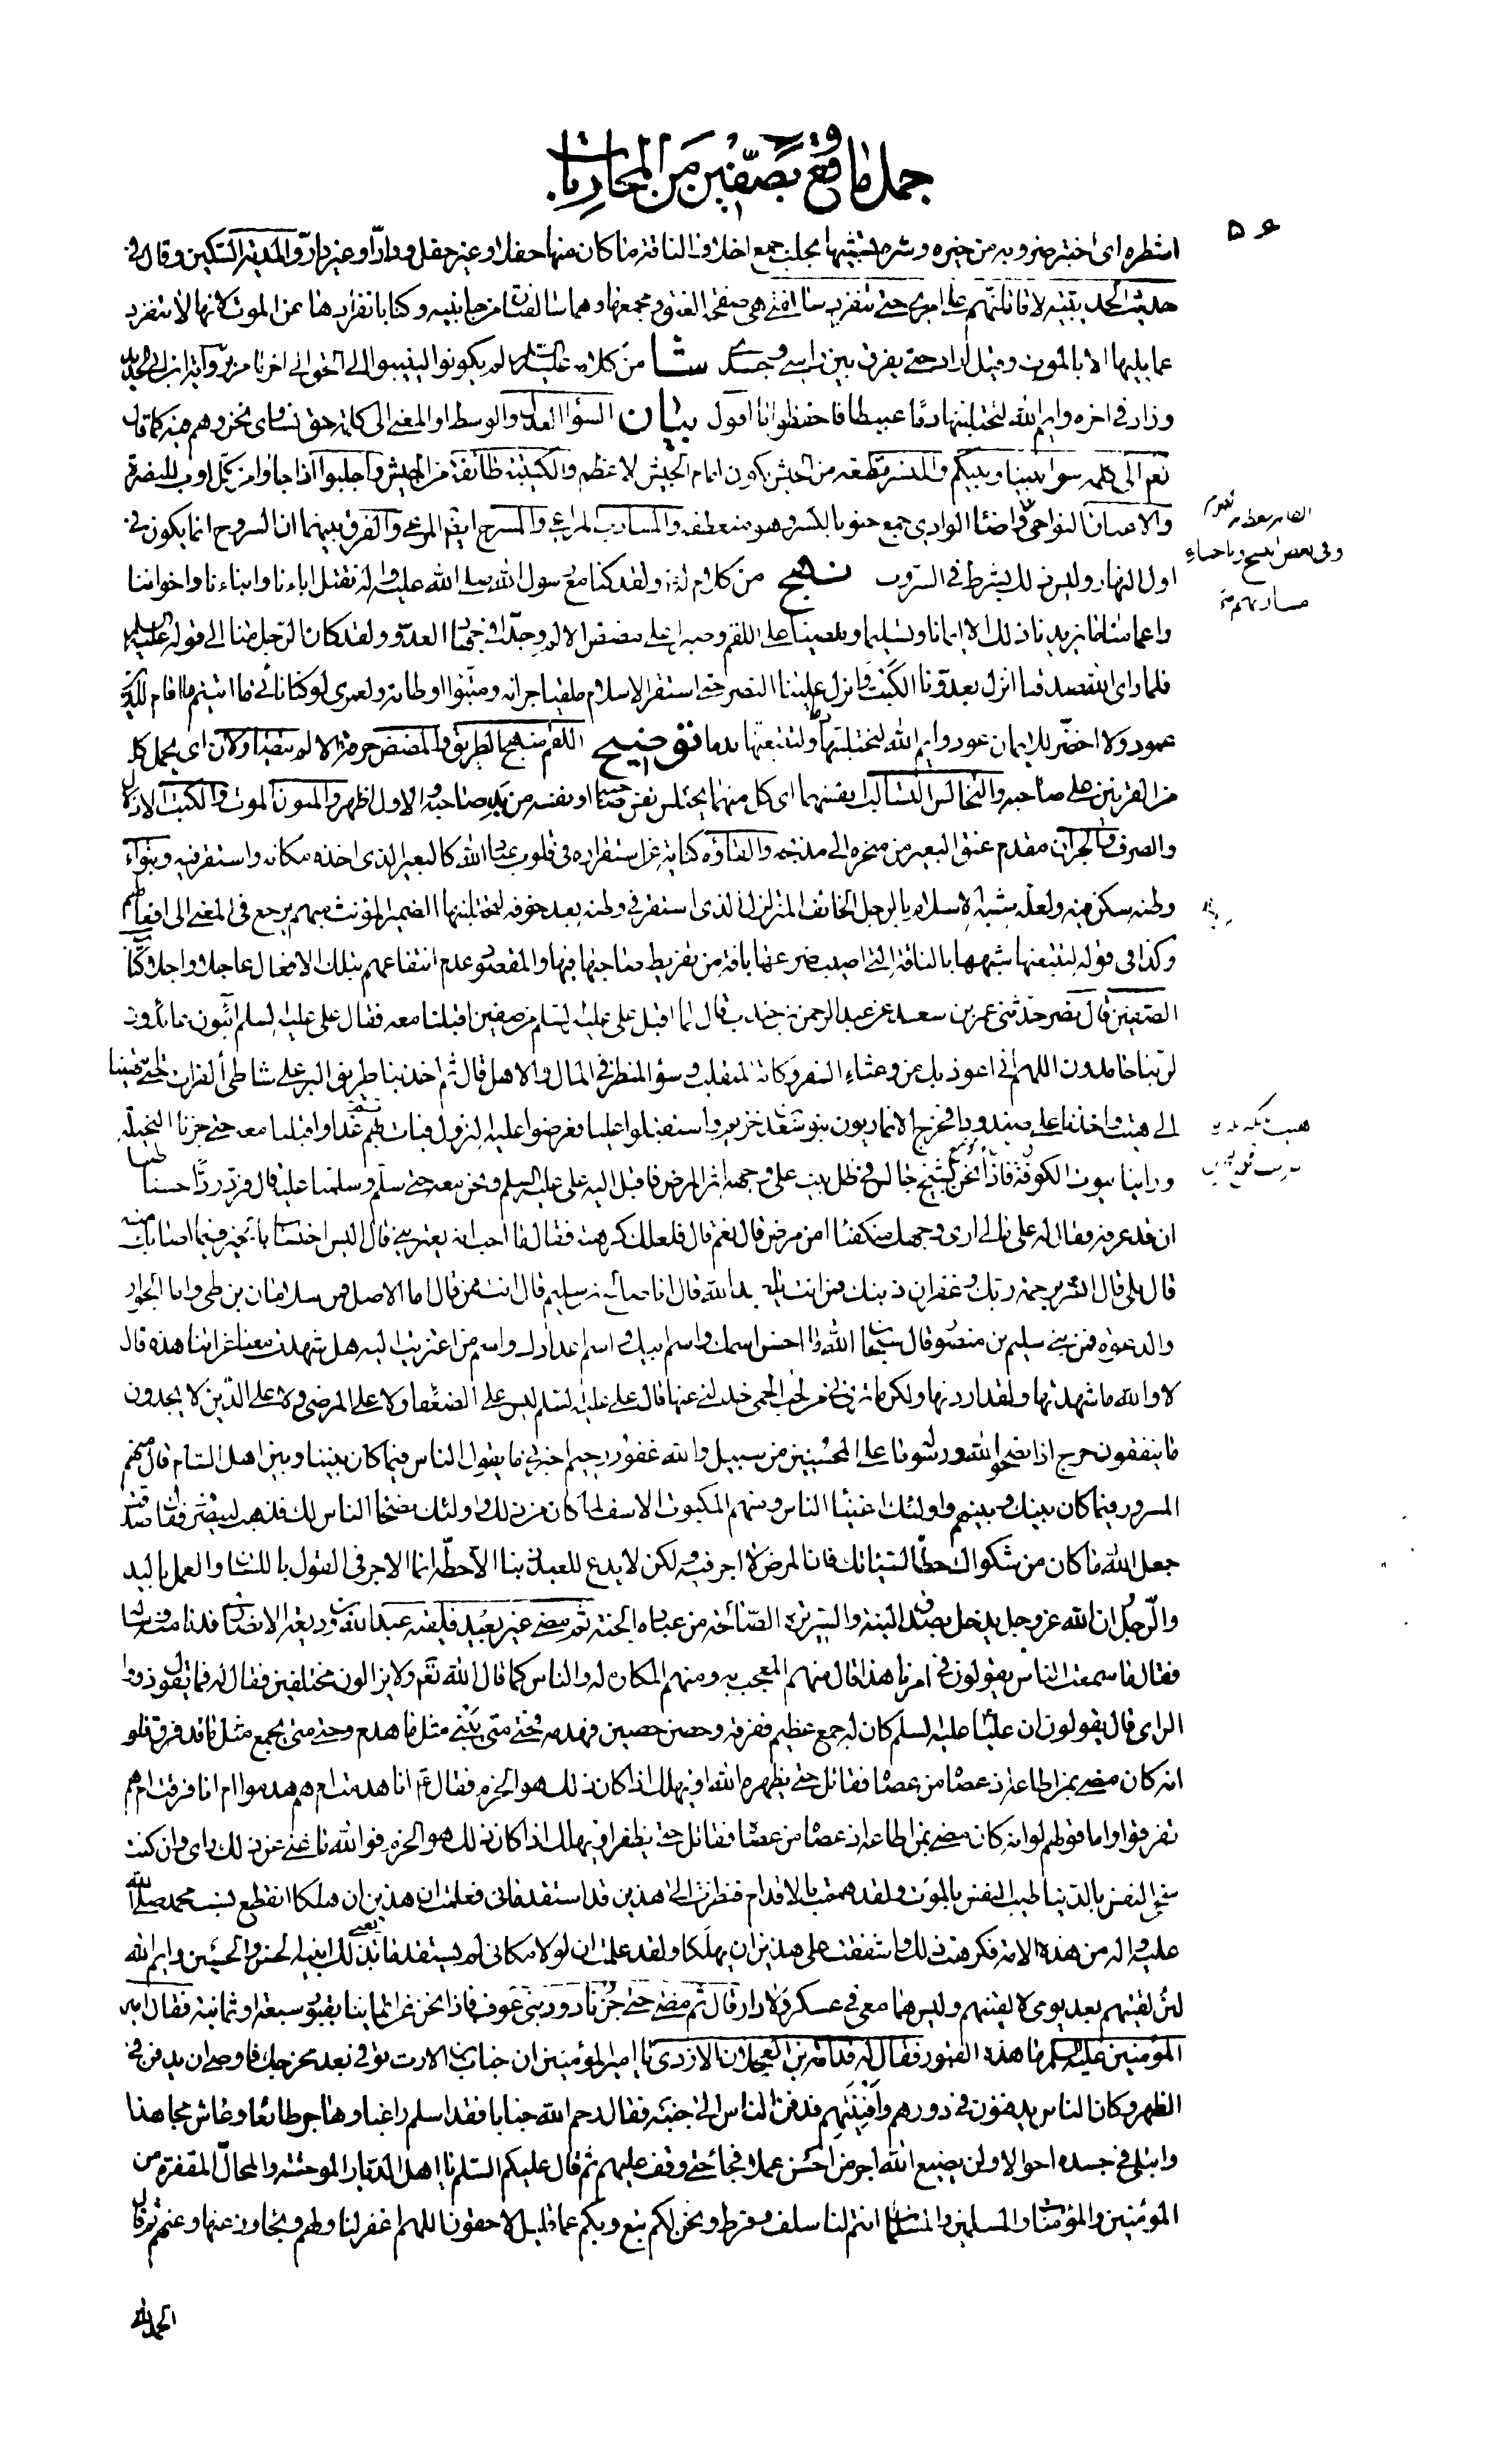 جمل ما وقع بصفين من المحاربات
اشطره اى اختبر ضروبه من خيره وشره تشبيها بحلب جمع اخلاف الناقة ما كان منها حفلا وغير حفل ودارّا وغير دارّ والهدنة السكين وقال فى
حديث الحديبية لاقاتلنهم على امرى حتى تنفرد سالفتى هى صفحة العنق وهما سالفتان من جانبيه وكنا بانفرادها عن الموت لانها لا تنفرد
عما يليها الا بالموت وقيل اراد حتى يفرق بين راسى وجسدى شا من كلامه عليه السلام لم يكونوا لينيبوا الى الحق الى اخر ما مر برواية ابن ابى الحديد
وزاد فى اخره وايم الله لتحتلبنها دما عبيطا فاحفظوا ما اقول بيان السواء العدل والوسط او المعنى الى كلمة حق نساوى نحن وهم فيه كما قال
نعم الى كلمة سواء بيننا وبينكم والمنسر قطعة من الجيش يكون امام الجيش الاعظم والكتيبة طائفة من الجيش واجلبوا اذا جاؤا من كل اوب للنصرة
والاعنان النواحى واحناء الوادى جمع حنو بالكسر وهو منعطفه والمسارب المراعى والمسرح ايضا المرعى والفرق بينهما ان السروح انما يكون فى
اول النهار وليس ذلك بشرط فى السروب نهج من كلام له ولقد كنا مع رسول الله صلى الله عليه واله نقتل اباءنا وابناءنا واخواننا
واعمامنا ما يزيدنا ذلك الا ايمانا وتسليما ومضينا على اللقم وصبرا على مضض الالم وجدّا فى جهاد العدوّ ولقد كان الرجل منا الى قوله عليه السلم
فلما راى الله صدقنا انزل بعدوّنا الكبت وانزل علينا النصر حتى استقر الاسلام ملقيا جرانه ومتبوّا اوطانه ولعمرى لو كنا ناتى ما اتيتم ما قام للدين
عمود ولا اخضرّ للايمان عود وايم الله لتحتلبنها دما ولتتبعنها ندما توضيح اللقم منهج الطريق والمضض حرقة الالم يتصاولان اى يحمل كل
من القرنين على صاحبه والتخالس التسالب انفسهما اى كل منهما يختلس نفس صاحبه او نفسه من يد صاحبه والاول اظهر والمنون الموت والكبت الاذلال
والصرف والجران مقدم عنق البعير من منحره الى مذبحه والقاؤه كناية عن استقراره فى قلوب عباد الله كالبعير الذى اخذ مكانه واستقر فيه وتبوّاء
وطنه سكن فيه ولعله شبه الاسلام بالرجل الخائف المتزلزل الذى استقر فى وطنه بعد خوفه لتحتلبنها الضمير المؤنث مبهم يرجع فى المعنى الى افعالهم
وكذا فى قوله لتتبعنها شبهها بالناقة التى اصيب ضرعها بافة من تفريط صاحبها فيها والمقصود عدم انتفاعهم بتلك الافعال عاجلا واجلا كتاب
الصفين قال نصر حدثنى عمر بن سعد عن عبد الرحمن بن جندب قال لما اقبل على عليه السلم من صفين اقبلنا معه فقال على عليه السلم آئبون عائدون
لربنا حامدون اللهم انى اعوذ بك من وعثاء السفر وكابة المنقلب وسوء المنظر فى المال والاهل قال ثم اخذ بنا طريق البر على شاطئ الفرات حتى انتهينا
الى هيت واخذنا على صندودا فخرج الانماريون بنو سعد بن خزيم واستقبلوا عليا فعرضوا عليه النزول فبات فيهم ثم غدا واقبلنا معه حتى جزنا النخيلة
وراينا بيوت الكوفة فاذا نحن بشيخ جالس فى ظل بيت على وجهه اثر المرض فاقبل اليه على عليه السلم ونحن معه حتى سلم وسلمنا عليه قال فردّ ردّا حسنا ظننا
ان قد عرفه فقال له على مالى ارى وجهك منكفئا امن مرض قال نعم قال فلعلك كرهته فقال ما احب انه بغيرى قال اليس احتسابا بالخير فيما اصابك منه
قال بلى قال ابشر برحمة ربك وغفران ذنبك من انت يا عبد الله قال انا صالح بن سليم قال انت ممن قال اما الاصل فمن سلامان بن طى واما الجوار
والدعوة فمن بنى سليم بن منصور قال سبحان الله ما احسن اسمك واسم ابيك واسم ادعيائك واسم من اعتزيت اليه هل شهدت معنا غزاتنا هذه قال
لا والله ما شهدتها ولقد اردتها ولكن ما ترى بى من لحب الحمى خذلنى عنها قال على عليه السلم ليس على الضعفاء ولا على المرضى ولا على الذين لا يجدون
ما ينفقون حرج اذا نصحوا لله ورسوله ما على المحسنين من سبيل والله غفور رحيم اخبرنى ما يقول الناس فيما كان بيننا وبين اهل الشام قال منهم
المسرور فيما كان بينك وبينهم واولئك اغنياء الناس ومنهم المكبوت الاسف لما كان من ذلك واولئك نصحاء الناس لك فذهب لينصرف فقال صدقت
جعل الله ما كان من شكواك حطا لسيئاتك فان المرض لا اجر فيه ولكن لا يدع للعبد ذنبا الا حطّه انما الاجر فى القول باللسان والعمل باليد
والرجل وان الله عز وجل يدخل بصدق النية والسريرة الصالحة من عباده الجنة ثم مضى غير بعيد فلقيه عبد الله بن وديعة الانصارى فدنا منه وسأله
فقال ما سمعت الناس يقولون فى امرنا هذا قال منهم المعجب به ومنهم الكاره له والناس كما قال الله تعم ولا يزالون مختلفين فقال له فما يقول ذووا
الراى قال يقولون ان عليّا عليه السلم كان له جمع عظيم ففرقه وحصن حصين فهدمه فحتى متى يبنى مثل ما هدم وحتى متى يجمع مثل ما قد فرق فلو
انه كان مضى بمن اطاعه اذ عصاه من عصاه فقاتل حتى يظهره الله او يهلك اذا كان ذلك هو الحزم فقال ع انا هدمت ام هم هدموا ام انا فرقت ام هم
تفرقوا واما قولهم لو انه كان مضى بمن اطاعه اذ عصاه من عصاه فقاتل حتى يظفر او يهلك اذا كان ذلك هو الحزم فوالله ما غبى عن ذلك راى وان كنت
سخى النفس بالدنيا طيب النفس بالموت ولقد هممت بالاقدام فنظرت الى هذين قد استقدمانى فعلمت ان هذين ان هلكا انقطع نسب محمد صلى الله
عليه واله من هذه الامة فكرهت ذلك واشفقت على هذين ان يهلكا ولقد علمت ان لولا مكانى لم يستقدما يعنى بذلك ابنيه الحسن والحسين وايم الله
لئن لقيتهم بعد يومى لا لقيتهم وليس هما معى فى عسكر ولا دار قال ثم مضى حتى جزنا دور بنى عوف فاذا نحن عن ايماننا بقبور سبعة او ثمانية فقال امير
المؤمنين عليه السلم ما هذه القبور فقال له قدامة بن العجلان الازدى يا امير المؤمنين ان خباب بن الارت توفى بعد مخرجك فاوصى ان يدفن فى
الظهر وكان الناس يدفنون فى دورهم وافنيتهم فدفن الناس الى جنبه فقال رحم الله خبابا فقد اسلم راغبا وهاجر طائعا وعاش مجاهدا
وابتلى فى جسده احوالا ولن يضيع الله اجر من احسن عملا فجاء حتى وقف عليهم ثم قال عليكم السلم يا اهل الديار الموحشة والمحالّ المقفرة من
المؤمنين والمؤمنات والمسلمين والمسلمات انتم لنا سلف وفرط ونحن لكم تبع وبكم عما قليل لاحقون اللهم اغفر لنا ولهم وتجاوز عنا وعنهم ثم قال
الحمد لله